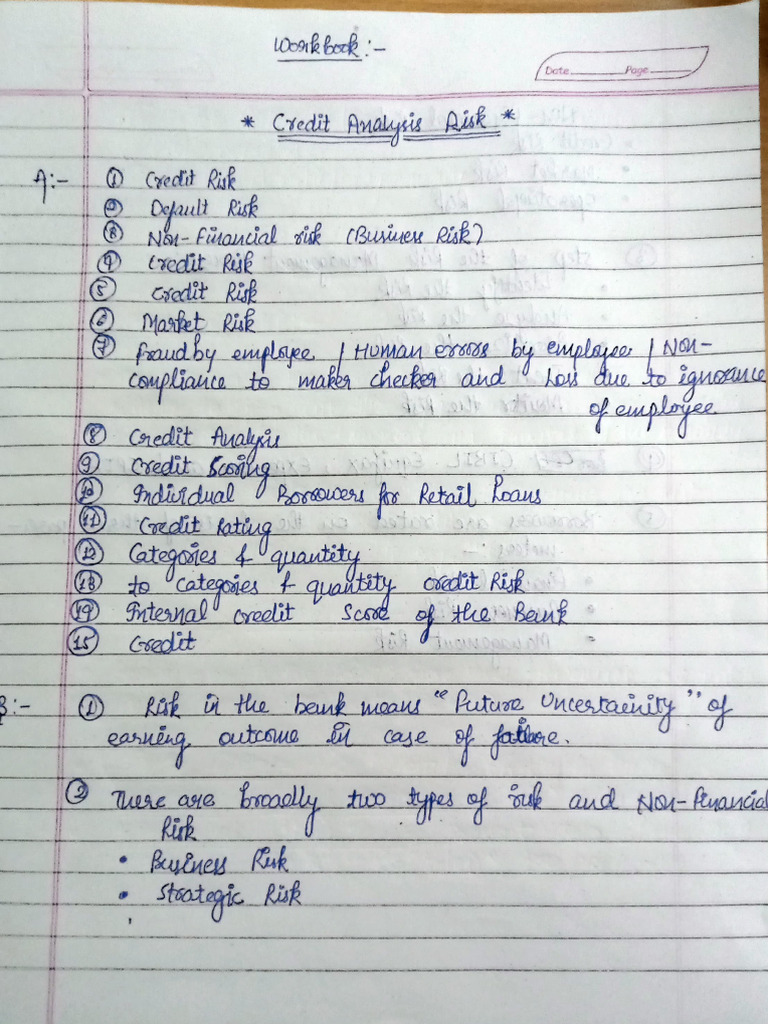 Workbook:-
Date Page
* Credit Analysis Risk *
A:- ① Credit Risk
② Default Risk
③ Non-Financial risk (Business Risk)
④ Credit Risk
⑤ Credit Risk
⑥ Market Risk
⑦ Fraud by employee / Human errors by employee / Non-
compliance to maker checker and Loss due to ignorance
of employee
⑧ Credit Analysis
⑨ Credit Scoring
⑩ Individual Borrowers for Retail Loans
⑪ Credit Rating
⑫ Categories & quantity
⑬ to categories & quantity credit Risk
⑭ Internal credit Score of the Bank
⑮ Credit
B:- ① Risk in the bank means "Future Uncertainity" of
earning outcome in case of failure.
② There are broadly two types of risk and Non-Financial
Risk
• Business Risk
• Strategic Risk